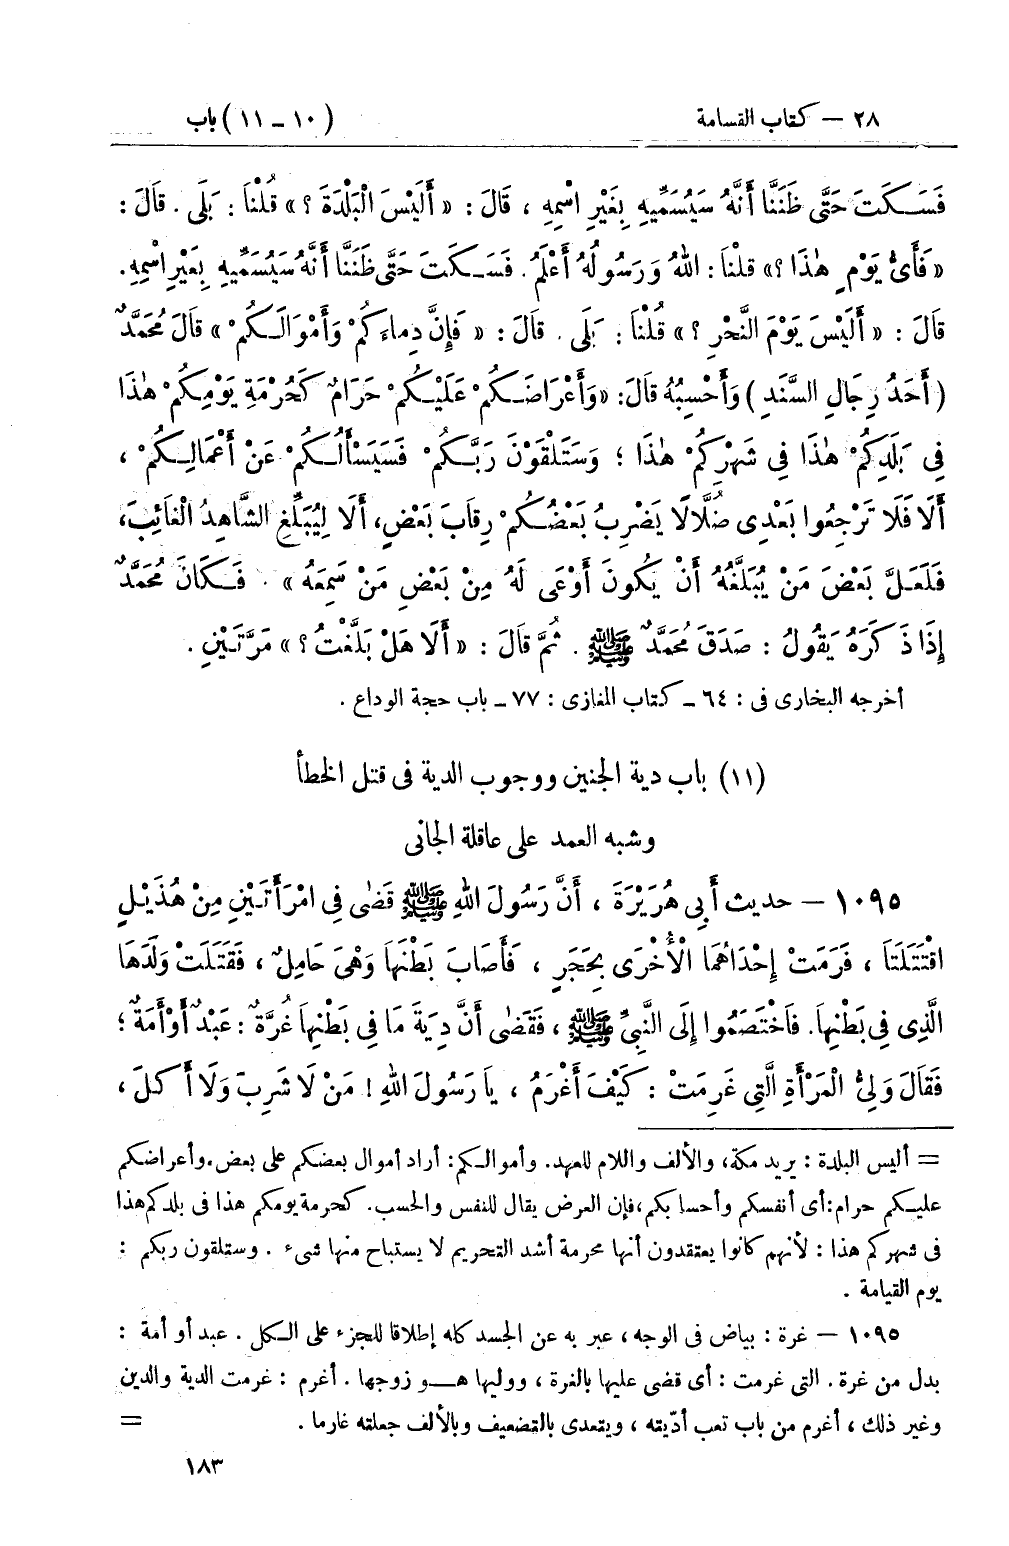 ٢٨ – كتاب القسامة (١٠ – ١١) باب
فَسَكَتَ حَتَّى ظَنَنَّا أَنَّهُ سَيُسَمِّيهِ بِغَيْرِ اسْمِهِ ، قَالَ : « أَلَيْسَ الْبَلْدَةَ ؟ » قُلْنَا : بَلَى . قَالَ :
« فَأَىُّ يَوْمٍ هٰذَا ؟ » قلْنَا : اللهُ وَرَسُولُهُ أَعْلَمُ . فَسَكَتَ حَتَّى ظَنَنَّا أَنَّهُ سَيُسَمِّيهِ بِغَيْرِ اسْمِهِ .
قَالَ : « أَلَيْسَ يَوْمَ النَّحْرِ ؟ » قُلْنَا : بَلَى . قَالَ : « فَإِنَّ دِماءَكُمْ وَأَمْوَالَكُمْ » قَالَ مُحَمَّدٌ
( أَحَدُ رِجَالِ السَّنَدِ ) وَأَحْسِبُهُ قَالَ : « وَأَعْرَاضَكُمْ عَلَيْكُمْ حَرَامٌ كَحُرْمَةِ يَوْمِكُمْ هٰذَا
فِى بَلَدِكُمْ هٰذَا فِى شَهْرِكُمْ هٰذَا ؛ وَسَتَلْقَوْنَ رَبَّكُمْ فَسَيَسْأَلُكُمْ عَنْ أَعْمَالِكُمْ ،
أَلَا فَلَا تَرْجِعُوا بَعْدِى ضُلَّالًا يَضْرِبُ بَعْضُكُمْ رِقَابَ بَعْضٍ ، أَلَا لِيُبَلِّغِ الشَّاهِدُ الْغَائِبَ ،
فَلَعَلَّ بَعْضَ مَنْ يُبَلَّغُهُ أَنْ يَكُونَ أَوْعَى لَهُ مِنْ بَعْضِ مَنْ سَمِعَهُ » . فَكَانَ مُحَمَّدٌ
إِذَا ذَكَرَهُ يَقُولُ : صَدَقَ مُحَمَّدٌ ﷺ . ثُمَّ قَالَ : « أَلَا هَلْ بَلَّغْتُ ؟ » مَرَّتَيْنِ .
أخرجه البخارى فى : ٦٤ – كتاب المغازى : ٧٧ – باب حجة الوداع .
(١١) باب دية الجنين ووجوب الدية فى قتل الخطأ
وشبه العمد على عاقلة الجانى
١٠٩٥ – حديث أَبِى هُرَيْرَةَ ، أَنَّ رَسُولَ اللهِ ﷺ قَضٰى فِى امْرَأَتَيْنِ مِنْ هُذَيْلٍ
اقْتَتَلَتَا ، فَرَمَتْ إِحْدَاهُمَا الْأُخْرَى بِحَجَرٍ ، فَأَصَابَ بَطْنَهَا وَهْىَ حَامِلٌ ، فَقَتَلَتْ وَلَدَهَا
الَّذِى فِى بَطْنِهَا . فَاخْتَصَمُوا إِلَى النَّبِىِّ ﷺ ، فَقَضٰى أَنَّ دِيَةَ مَا فِى بَطْنِهَا غُرَّةٌ : عَبْدٌ أَوْ أَمَةٌ ؛
فَقَالَ وَلِىُّ الْمَرْأَةِ الَّتِى غَرِمَتْ : كَيْفَ أَغْرَمُ ، يَا رَسُولَ اللهِ ! مَنْ لَا شَرِبَ وَلَا أَكَلَ ،
= أليس البلدة : يريد مكة، والألف واللام للعهد. وأموالكم : أراد أموال بعضكم على بعض. وأعراضكم
عليكم حرام : أى أنفسكم وأحسابكم، فإن العرض يقال للنفس والحسب. كحرمة يومكم هذا فى بلدكم هذا
فى شهركم هذا : لأنهم كانوا يعتقدون أنها محرمة أشد التحريم لا يستباح منها شىء . وستلقون ربكم :
يوم القيامة .
١٠٩٥ – غرة : بياض فى الوجه ، عبر به عن الجسد كله إطلاقا للجزء على الكل . عبد أو أمة :
بدل من غرة . التى غرمت : أى قضى عليها بالغرة ، ووليها هو زوجها . أغرم : غرمت الدية والدين
وغير ذلك ، أغرم من باب تعب أدّيته ، ويتعدى بالتضعيف وبالألف جعلته غارما . =
١٨٣